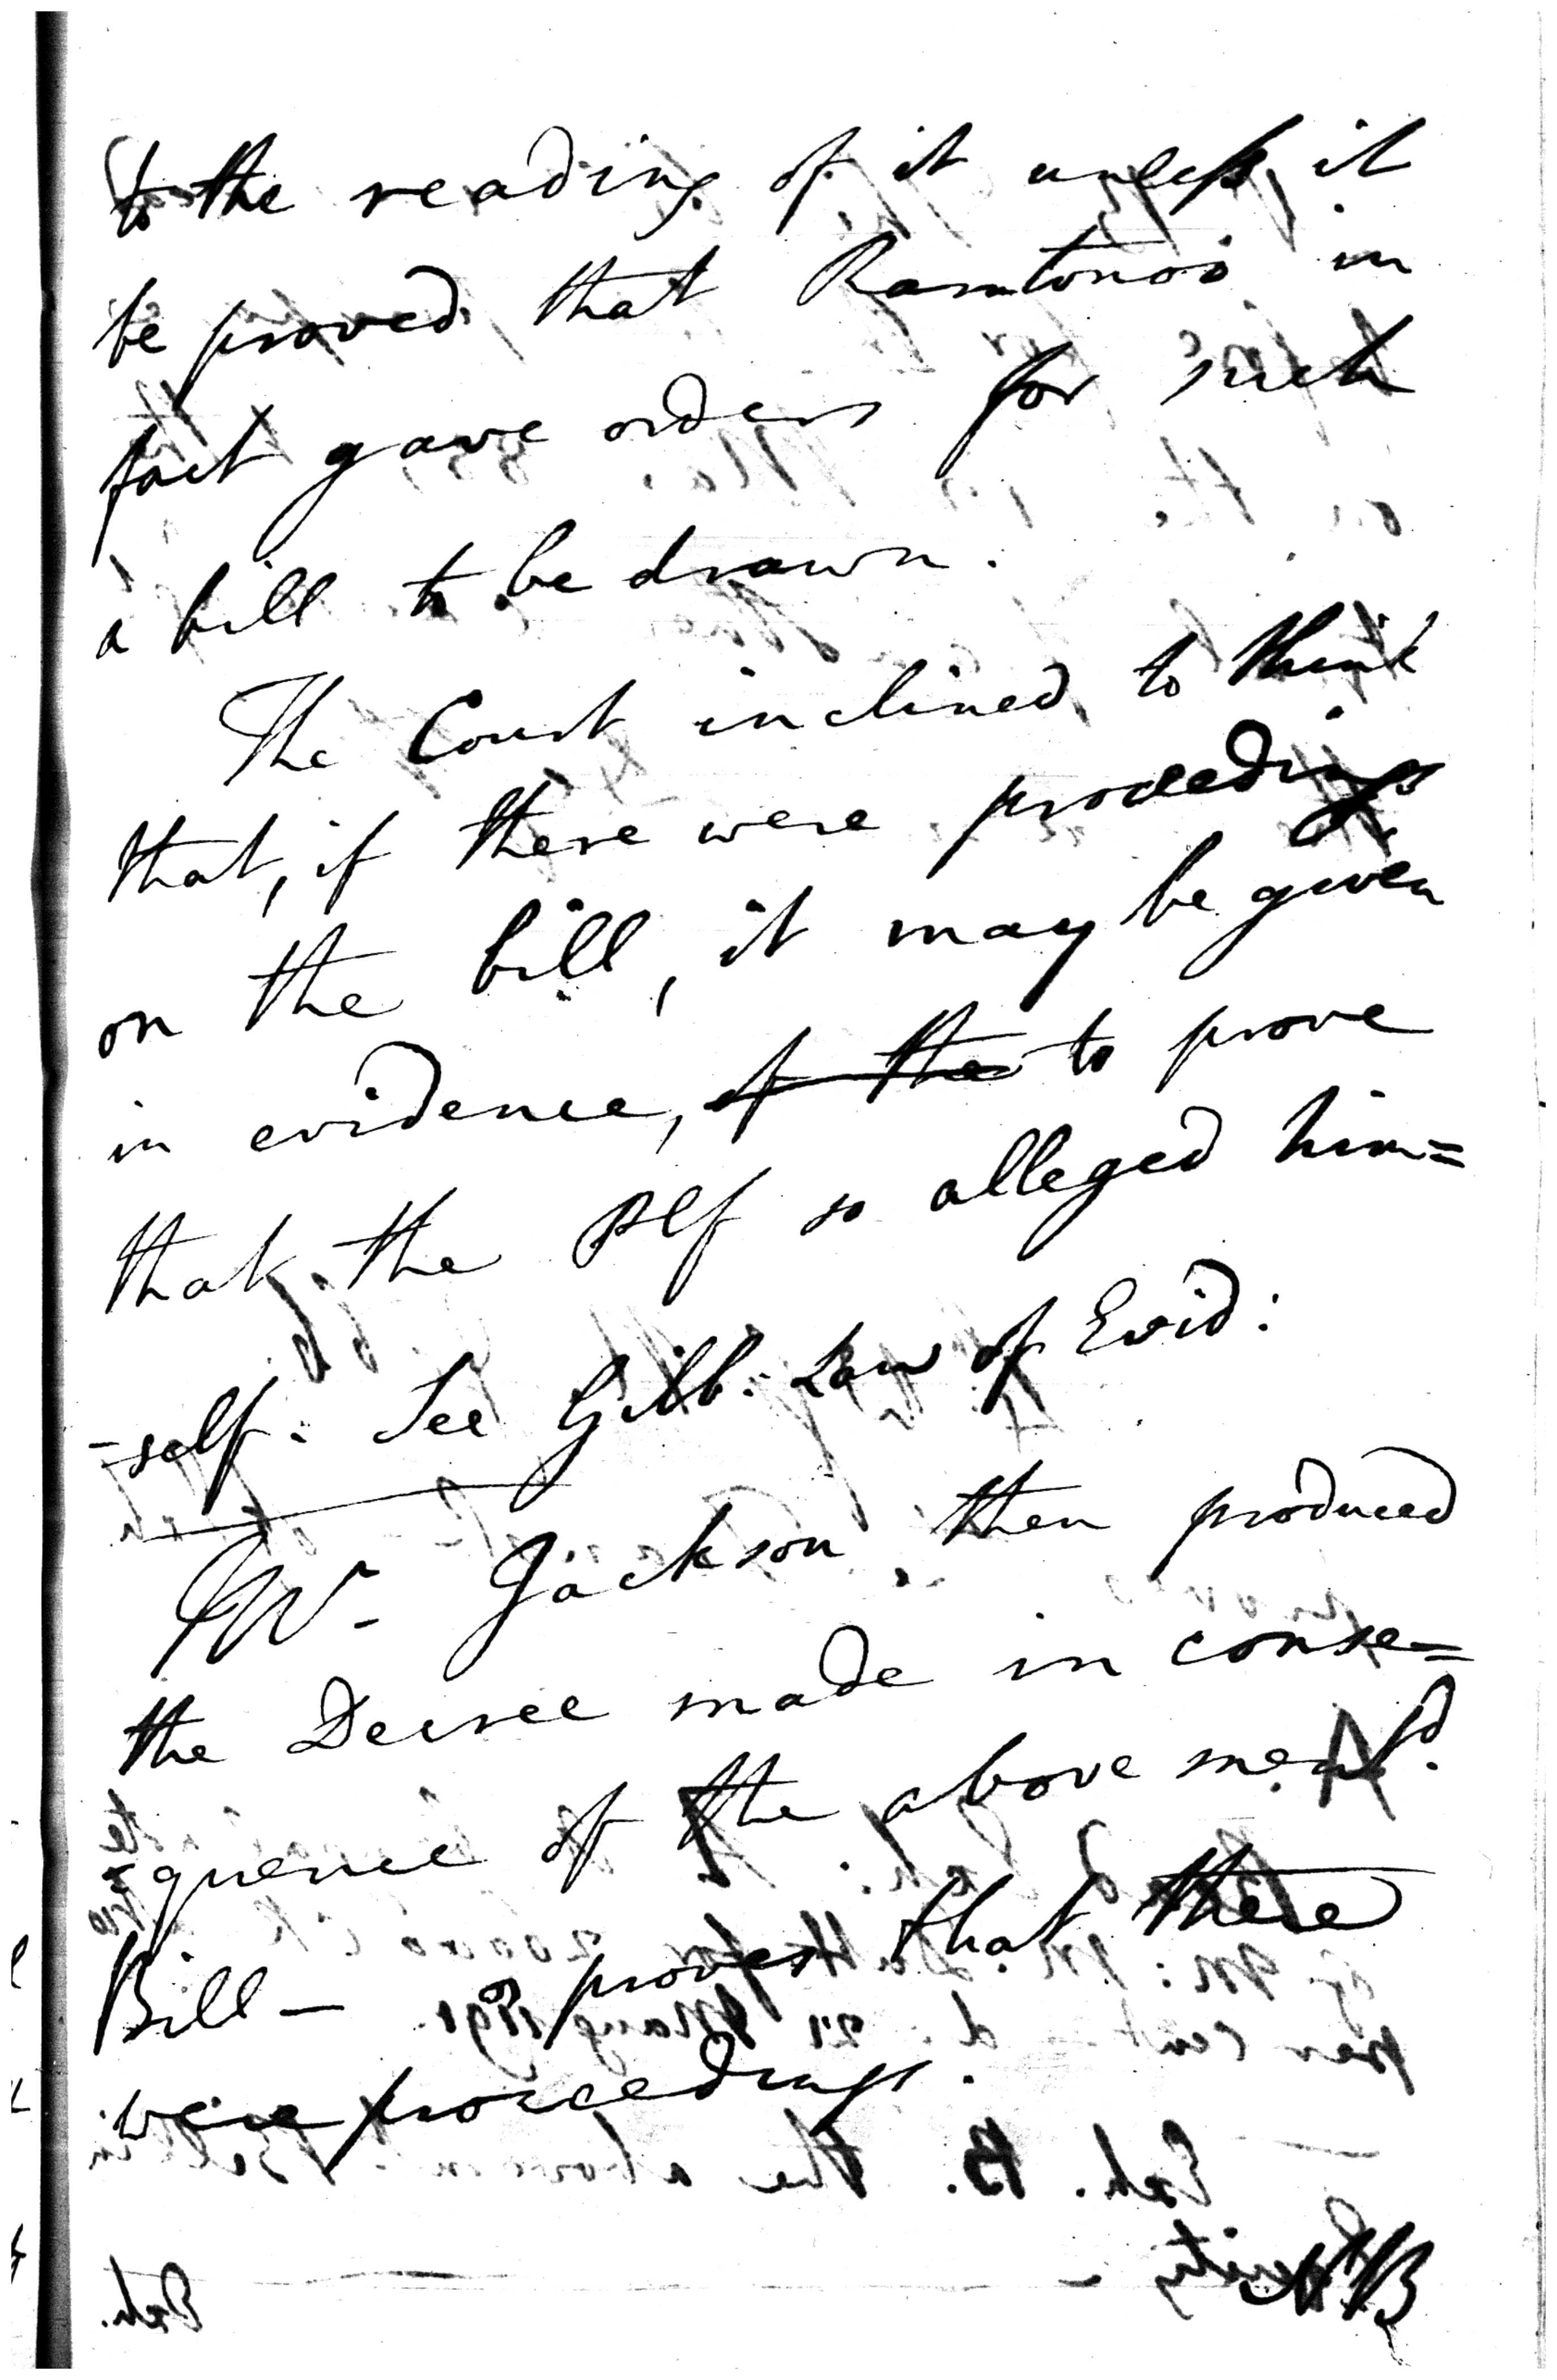 to the reading of it unless it
be proved that Ramtonoo in
fact gave orders for such
a bill to be drawn.
The Court inclined to think
that, if there were proceedings
on the bill, it may be given
in evidence, of the to prove
that the Plf so alleged him=
-self. See Gilb. Law of Evid:
Mr. Jackson then produced
the Decree made in conse=
=quence of the above mentd.
Bill — proves that there
were proceedings.
NB